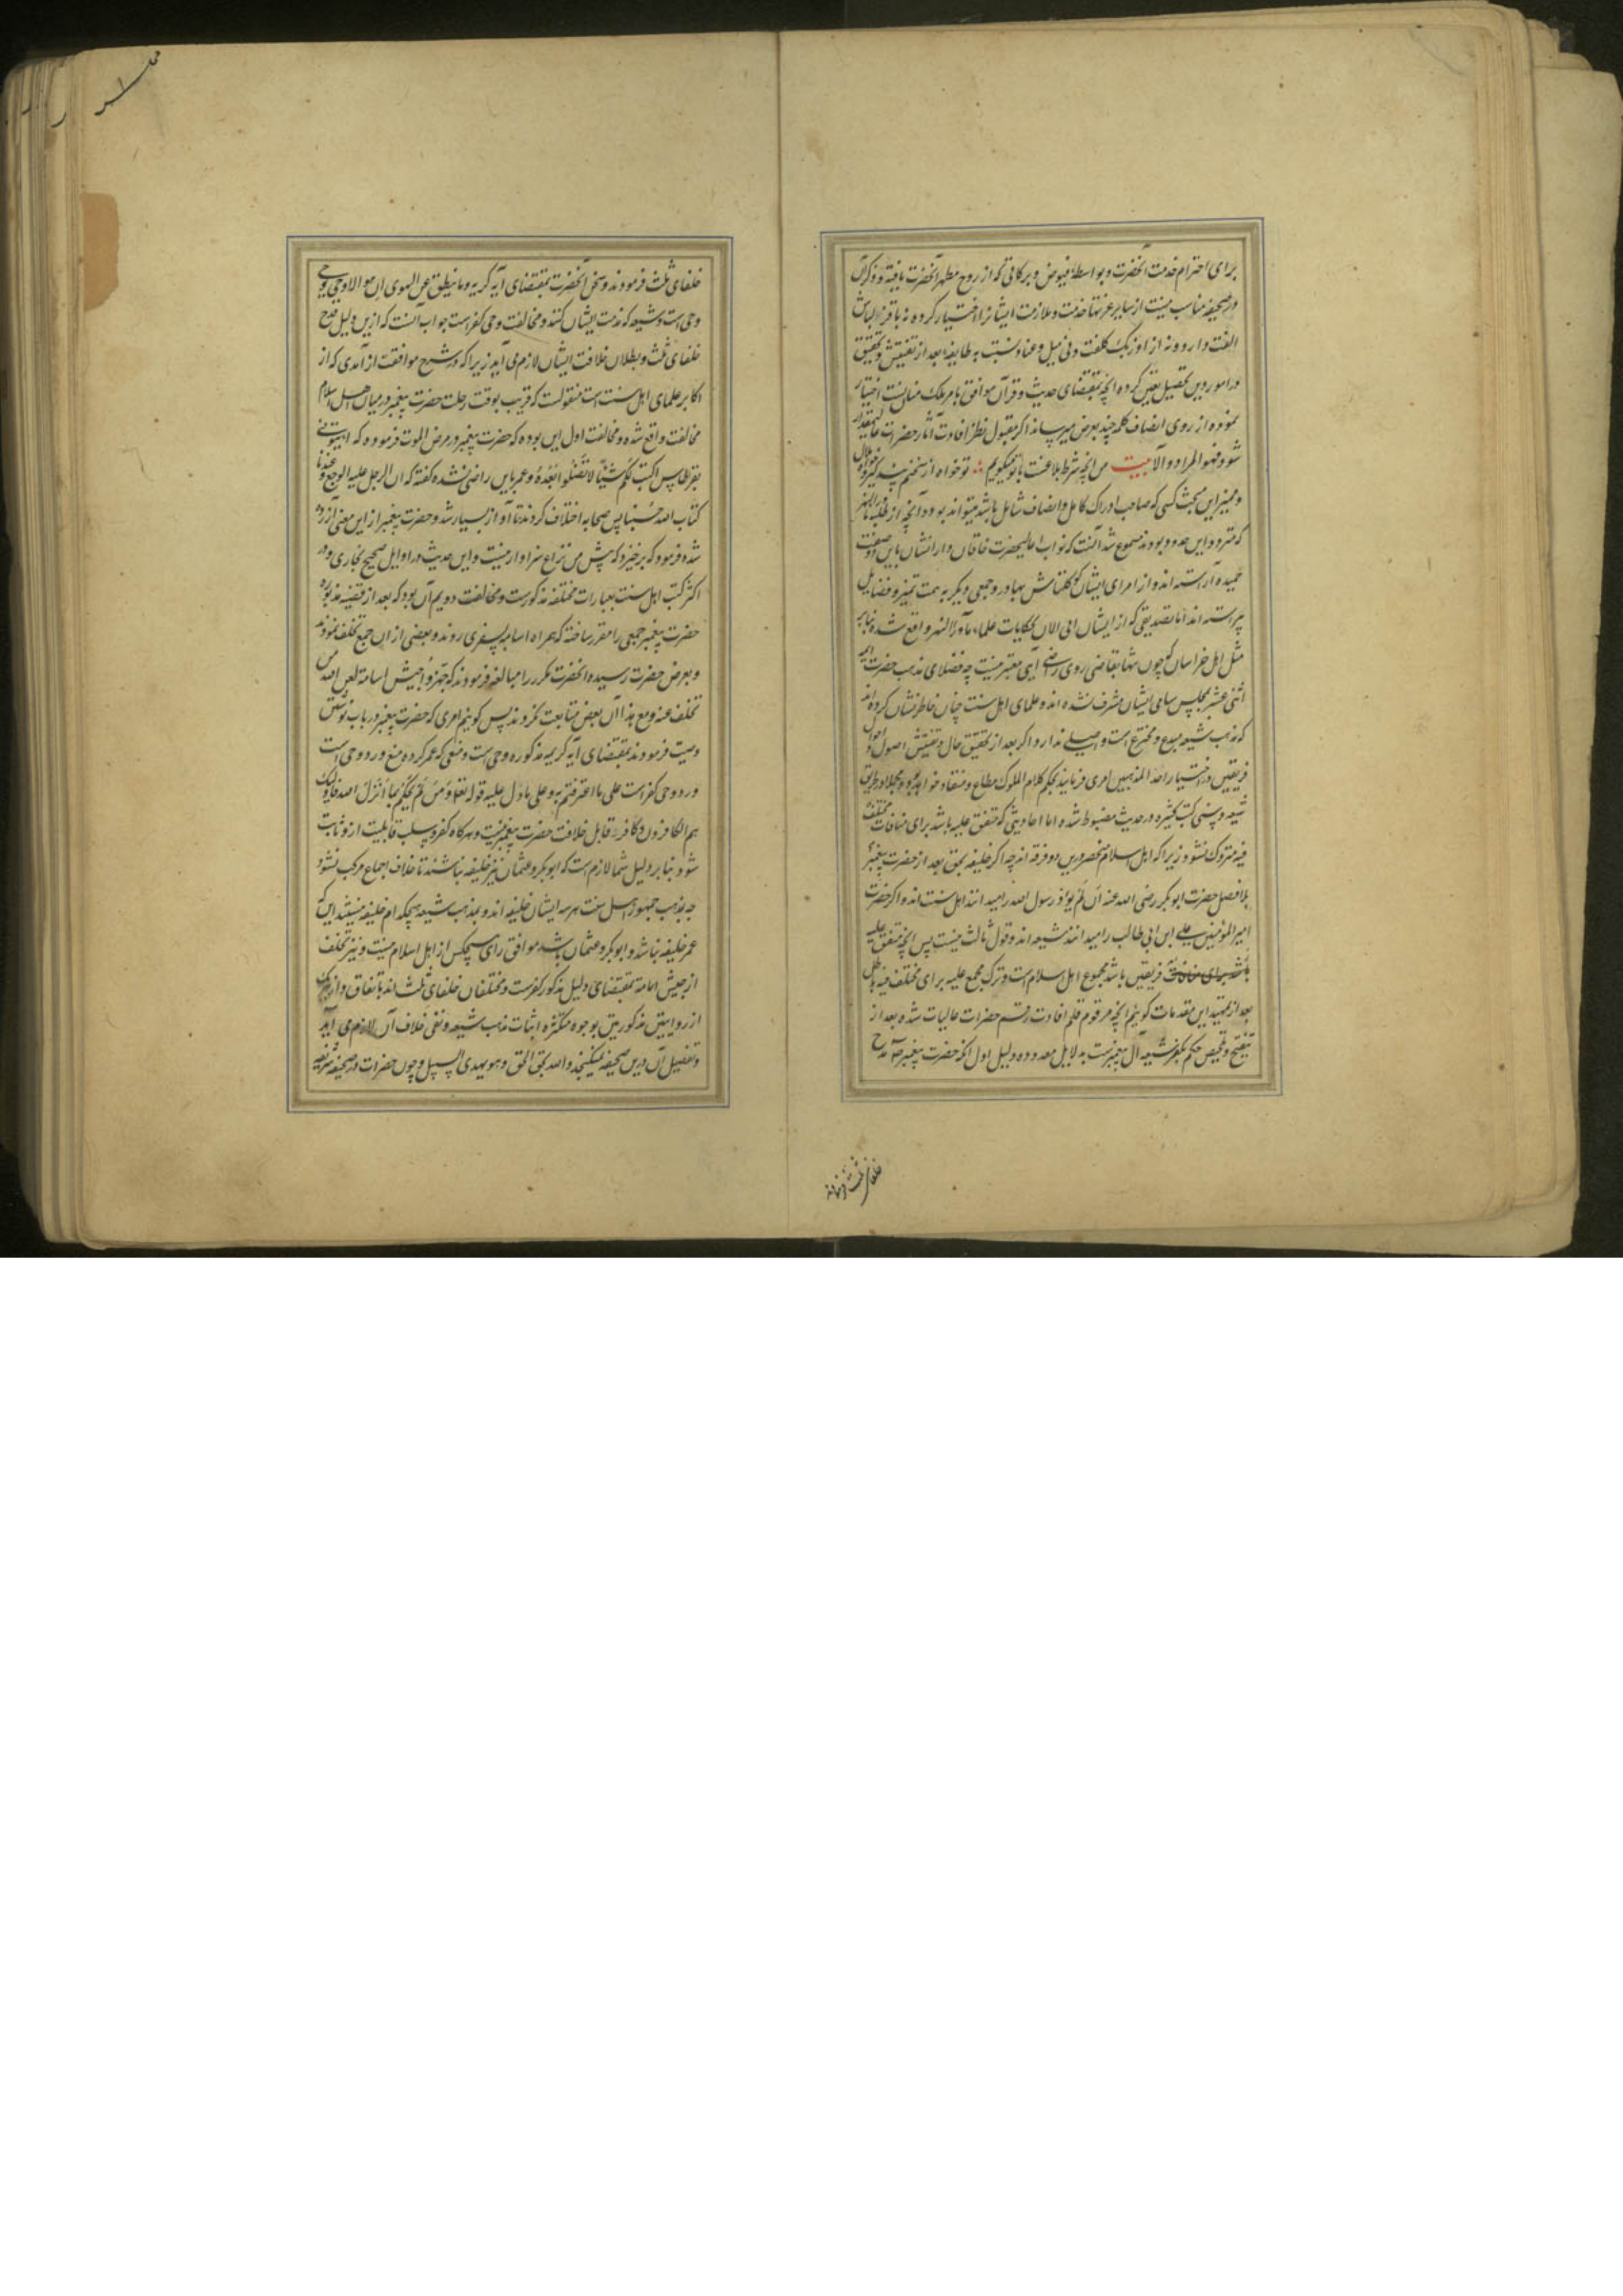 برای احترام خدمت آنحضرت و بواسطهٔ فیوض و برکاتی که از روح مطهر آنحضرت یافته و ذکر آن
در صحیفه مناسب نیست از سایر عزتها خدمت و ملازمت ایشانرا اختیار کرده نه با قزلباش
الفت دارد و نه از اوزبک کلفت و نی میل و عناد نسبت به طایفهٔ بعد از تفتیش و تحقیق
در امور دین تحصیل یقین کرده آنچه بمقتضای حدیث و قرآن موافق بامر ملک منان نیست اختیار
نموده از روی انصاف کلمه چند بعرض میرساند اگر مقبول نظر افادت آثار حضرات عالیمقدار
شود فهو المراد و الا بیت من آنچه شرط بلاغت با تو میگویم تو خواه از سخنم پند گیر و خواه ملال
و ممیز این مبحث کسی که صاحب ادراک کامل و انصاف شامل باشد میتواند بود و آنچه از طلبه ماوراالنهر
که متردد این حدود بودند مسموع شد آنست که نواب اعلیحضرت خاقان دارانشان باین دو صفت
حمیده آراسته اند و از امرای ایشان کوکلتاش بهادر و جمعی دیگر به سمت تمیز و فضایل
پیراسته اند اما تصدیقی که از ایشان الی الان بحکایات علماء ماوراالنهر واقع شده بنابر
مثل اهل خراسان که چون تنها بقاضی روی راضی آیی معتبر نیست چه فضلای مذهب حضرت ائمه
اثنی عشر بمجلس سامی ایشان مشرف نشده اند و علمای اهل سنت چنان خاطرنشان کرده اند
که مذهب شیعه مبدع و مخترع است و اصلی ندارد اگر بعد از تحقیق حال و تفتیش اصول و احوال
فریقین در اختیار احد المذهبین امری فرمایند بحکم کلام الملوک مطاع و منقاد خواهد بود و مجملا در طریق
شیعه و سنی کتب کثیره در حدیث مضبوط شده اما احادیثی که متفق علیه باشد برای منافات مختلف
فیه متروک نشود زیرا که اهل اسلام منحصر درین دو فرقه اند چه اگر خلیفه بحق بعد از حضرت پیغمبر
بلا فصل حضرت ابوبکر رضی الله عنه ان لم یؤذ رسول الله را میدانند اهل سنت اند و اگر حضرت
امیرالمؤمنین علی ابن ابی طالب را میدانند شیعه اند و قول ثالث نیست پس آنچه متفق علیه
فریقین باشد مجموع اهل اسلام است و ترک مجمع علیه برای مختلف فیه باطل
بعد از تمهید این مقدمات گوییم آنچه مرقوم قلم افادت رقم حضرات عالیات شده بعد از
تنقیح و تلخیص حکم بکفر شیعه آل پیغمبرست بدلایل معدوده دلیل اول آنکه حضرت پیغمبر ص مدح
خلفای ثلث فرموده‌اند
خلفای ثلث فرمودند و سخن آنحضرت بمقتضای آیه کریمه و ما ینطق عن الهوی ان هو الا وحی یوحی
وحی است و شیعه که مذمت ایشان کنند و مخالفت وحی کفر است جواب آنست که ازین دلیل قدح
خلفای ثلث و بطلان خلافت ایشان لازم می آید زیرا که در شرح مواقف از آمدی که از
اکابر علمای اهل سنت است منقولست که قریب بوقت رحلت حضرت پیغمبر در میان اهل اسلام
مخالفت واقع شده و مخالفت اول این بوده که حضرت پیغمبر در مرض الموت فرموده که ایتونی
بقرطاس اکتب لکم شیئاً لا تضلوا بعده و عمر باین راضی نشده گفته که ان الرجل غلبه الوجع و عندنا
کتاب الله حسبنا پس صحابه اختلاف کردند تا آواز بسیار شد و حضرت پیغمبر از این معنی آزرده
شد و فرمود که برخیزد که پیش من نزاع سزاوار نیست و این حدیث در اوایل صحیح بخاری و در
اکثر کتب اهل سنت بعبارات مختلفه مذکورست و مخالفت دویم آن بود که بعد از قضیه مذبوره
حضرت پیغمبر جمعی را مقرر ساخته که همراه اسامه بسفری روند و بعضی از ان جمع تخلف نمودند
و بعرض حضرت رسیده آنحضرت مکرر را مبالغه فرمودند که جهزوا جیش اسامة لعن الله من
تخلف عنه و مع هذا آن بعض متابعت نکردند پس گوییم امری که حضرت پیغمبر در باب نوشتن
وصیت فرمودند بمقتضای آیه کریمه مذکوره وحی است و منعی که عمر کرده منع و رد وحی است
و رد وحی کفر است علی ما اعترفتم به و علی ما دل علیه قوله تعا و من لم یحکم بما انزل الله فاولئک
هم الکافرون و کافر قابل خلافت حضرت پیغمبر نیست و هرگاه کفر و سلب قابلیت ازو ثابت
شود بنابر دلیل شما لازم است که ابوبکر و عثمان نیز خلیفه نباشند تا خلاف اجماع مرکب نشود
چه بمذهب جمهور اهل سنت هر سه ایشان خلیفه اند و بمذهب شیعه هیچکدام خلیفه نیستند این که
عمر خلیفه نباشد و ابوبکر و عثمان باشد موافق رای هیچکس از اهل اسلام نیست و نیز تخلف
از جیش اسامة بمقتضای دلیل مذکور کفرست و متخلفان خلفای ثلث اند باتفاق و از هر یک
از روایتین مذکورتین بوجوه متکثره اثبات مذهب شیعه و نفی خلاف آن لازم می آید
و تفصیل آن درین صحیفه نمیگنجد و الله یحق الحق و هو یهدی السبیل و چون حضرات در صحیفه شریفه